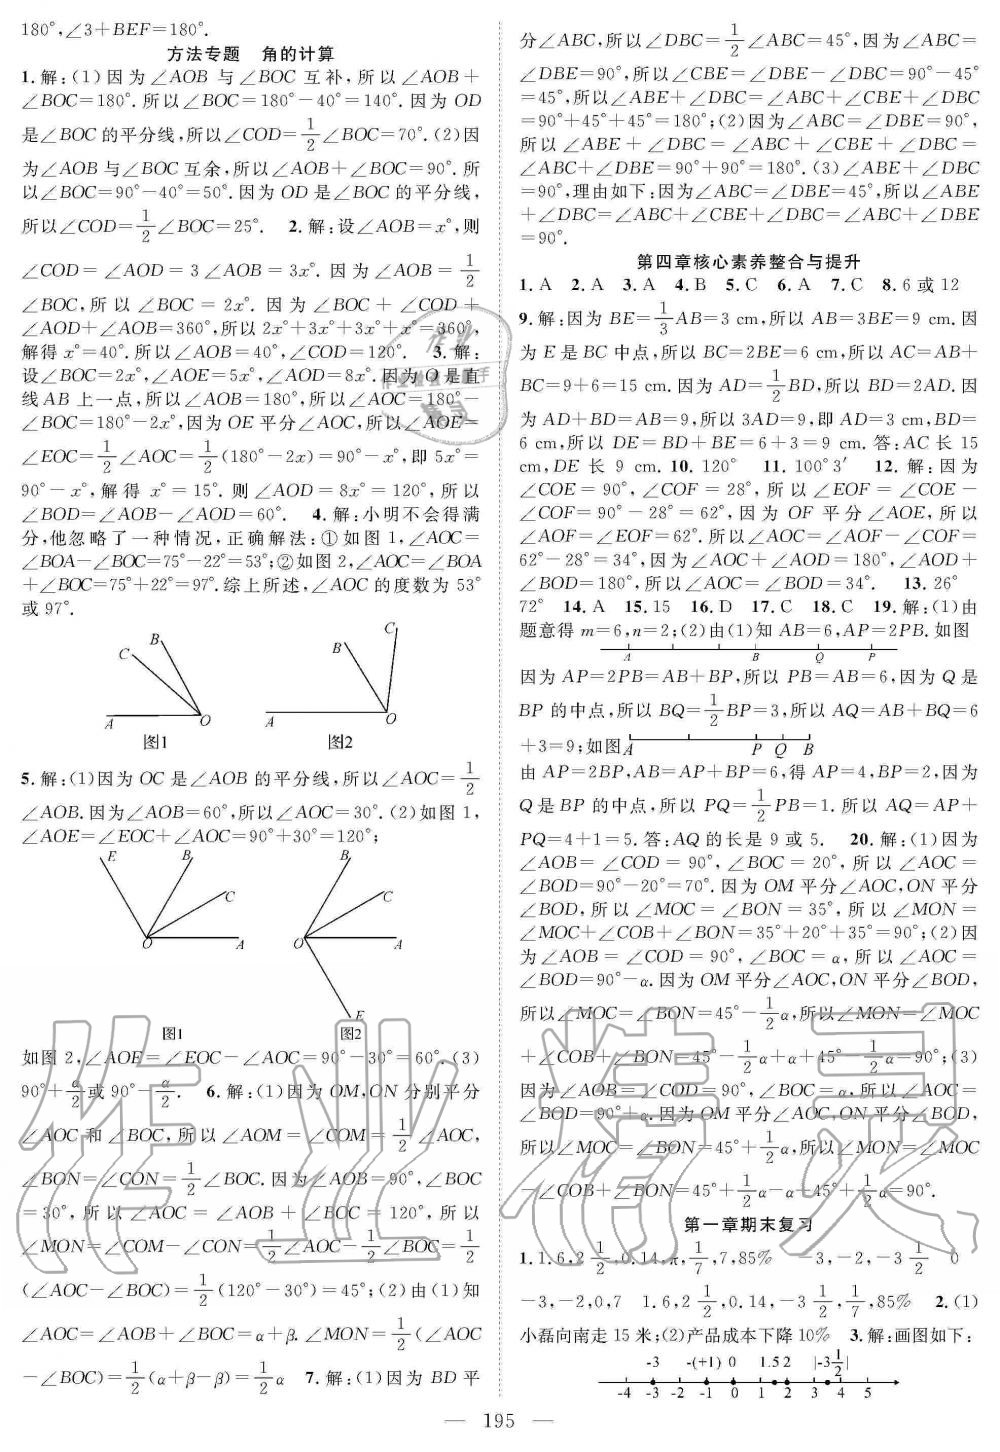 180°,∠3+BEF=180°.
方法专题　角的计算
1.解:(1)因为∠AOB与∠BOC互补,所以∠AOB+
∠BOC=180°.所以∠BOC=180°-40°=140°.因为OD
是∠BOC的平分线,所以∠COD=1/2∠BOC=70°.(2)因
为∠AOB与∠BOC互余,所以∠AOB+∠BOC=90°.所
以∠BOC=90°-40°=50°.因为OD是∠BOC的平分线,
所以∠COD=1/2∠BOC=25°.　2.解:设∠AOB=x°,则
∠COD=∠AOD=3∠AOB=3x°.因为∠AOB=1/2
∠BOC,所以∠BOC=2x°.因为∠BOC+∠COD+
∠AOD+∠AOB=360°,所以2x°+3x°+3x°+x°=360°,
解得x°=40°.所以∠AOB=40°,∠COD=120°.　3.解:
设∠BOC=2x°,∠AOE=5x°,∠AOD=8x°.因为O是直
线AB上一点,所以∠AOB=180°,所以∠AOC=180°-
∠BOC=180°-2x°,因为OE平分∠AOC,所以∠AOE=
∠EOC=1/2∠AOC=1/2(180°-2x)=90°-x°,即5x°=
90°-x°,解得x°=15°.则∠AOD=8x°=120°,所以
∠BOD=∠AOB-∠AOD=60°.　4.解:小明不会得满
分,他忽略了一种情况,正确解法:①如图1,∠AOC=
∠BOA-∠BOC=75°-22°=53°;②如图2,∠AOC=∠BOA
+∠BOC=75°+22°=97°.综上所述,∠AOC的度数为53°
或97°.
C B A O
图1
B C A O
图2
5.解:(1)因为OC是∠AOB的平分线,所以∠AOC=1/2
∠AOB.因为∠AOB=60°,所以∠AOC=30°.(2)如图1,
∠AOE=∠EOC+∠AOC=90°+30°=120°;
E B C O A
图1
B C O A E
图2
如图2,∠AOE=∠EOC-∠AOC=90°-30°=60°.(3)
90°+α/2或90°-α/2.　6.解:(1)因为OM,ON分别平分
∠AOC和∠BOC,所以∠AOM=∠COM=1/2∠AOC,
∠BON=∠CON=1/2∠BOC.因为∠AOB=90°,∠BOC
=30°,所以∠AOC=∠AOB+∠BOC=120°,所以
∠MON=∠COM-∠CON=1/2∠AOC-1/2∠BOC=1/2
(∠AOC-∠BOC)=1/2(120°-30°)=45°;(2)由(1)知
∠AOC=∠AOB+∠BOC=α+β.∠MON=1/2(∠AOC
-∠BOC)=1/2(α+β-β)=1/2α　7.解:(1)因为BD平
分∠ABC,所以∠DBC=1/2∠ABC=45°,因为∠ABC=
∠DBE=90°,所以∠CBE=∠DBE-∠DBC=90°-45°
=45°,所以∠ABE+∠DBC=∠ABC+∠CBE+∠DBC
=90°+45°+45°=180°;(2)因为∠ABC=∠DBE=90°,
所以∠ABE+∠DBC=∠ABC+∠CBE+∠DBC=
∠ABC+∠DBE=90°+90°=180°.(3)∠ABE+∠DBC
=90°,理由如下:因为∠ABC=∠DBE=45°,所以∠ABE
+∠DBC=∠ABC+∠CBE+∠DBC=∠ABC+∠DBE
=90°.
第四章核心素养整合与提升
1.A　2.A　3.A　4.B　5.C　6.A　7.C　8.6或12
9.解:因为BE=1/3AB=3 cm,所以AB=3BE=9 cm.因
为E是BC中点,所以BC=2BE=6 cm,所以AC=AB+
BC=9+6=15 cm.因为AD=1/2BD,所以BD=2AD.因
为AD+BD=AB=9,所以3AD=9,即AD=3 cm,BD=
6 cm,所以DE=BD+BE=6+3=9 cm.答:AC长15
cm,DE长9 cm.　10.120°　11.100°3′　12.解:因为
∠COE=90°,∠COF=28°,所以∠EOF=∠COE-
∠COF=90°-28°=62°,因为OF平分∠AOE,所以
∠AOF=∠EOF=62°.所以∠AOC=∠AOF-∠COF=
62°-28°=34°,因为∠AOC+∠AOD=180°,∠AOD+
∠BOD=180°,所以∠AOC=∠BOD=34°.　13.26°
72°　14.A　15.15　16.D　17.C　18.C　19.解:(1)由
题意得m=6,n=2;(2)由(1)知AB=6,AP=2PB.如图
A B Q P
因为AP=2PB=AB+BP,所以PB=AB=6,因为Q是
BP的中点,所以BQ=1/2BP=3,所以AQ=AB+BQ=6
+3=9;如图A P Q B
由AP=2BP,AB=AP+BP=6,得AP=4,BP=2,因为
Q是BP的中点,所以PQ=1/2PB=1.所以AQ=AP+
PQ=4+1=5.答:AQ的长是9或5.　20.解:(1)因为
∠AOB=∠COD=90°,∠BOC=20°,所以∠AOC=
∠BOD=90°-20°=70°.因为OM平分∠AOC,ON平分
∠BOD,所以∠MOC=∠BON=35°,所以∠MON=
∠MOC+∠COB+∠BON=35°+20°+35°=90°;(2)因
为∠AOB=∠COD=90°,∠BOC=α,所以∠AOC=
∠BOD=90°-α.因为OM平分∠AOC,ON平分∠BOD,
所以∠MOC=∠BON=45°-1/2α,所以∠MON=∠MOC
+∠COB+∠BON=45°-1/2α+α+45°-1/2α=90°;(3)
因为∠AOB=∠COD=90°,∠BOC=α,所以∠AOC=
∠BOD=90°+α.因为OM平分∠AOC,ON平分∠BOD,
所以∠MOC=∠BON=45°+1/2α,所以∠MON=∠MOC
-∠COB+∠BON=45°+1/2α-α+45°+1/2α=90°.
第一章期末复习
1.1.6,2 1/2,0.14,π,1/7,7,85%　-3,-2,-3 1/2　0
-3,-2,0,7　1.6,2 1/2,0.14,-3 1/2,1/7,85%　2.(1)
小磊向南走15米;(2)产品成本下降10%　3.解:画图如下:
-3 -(+1) 0 1.5 2 |-3 1/2|
-4 -3 -2 -1 0 1 2 3 4 5
— 195 —
作业精灵